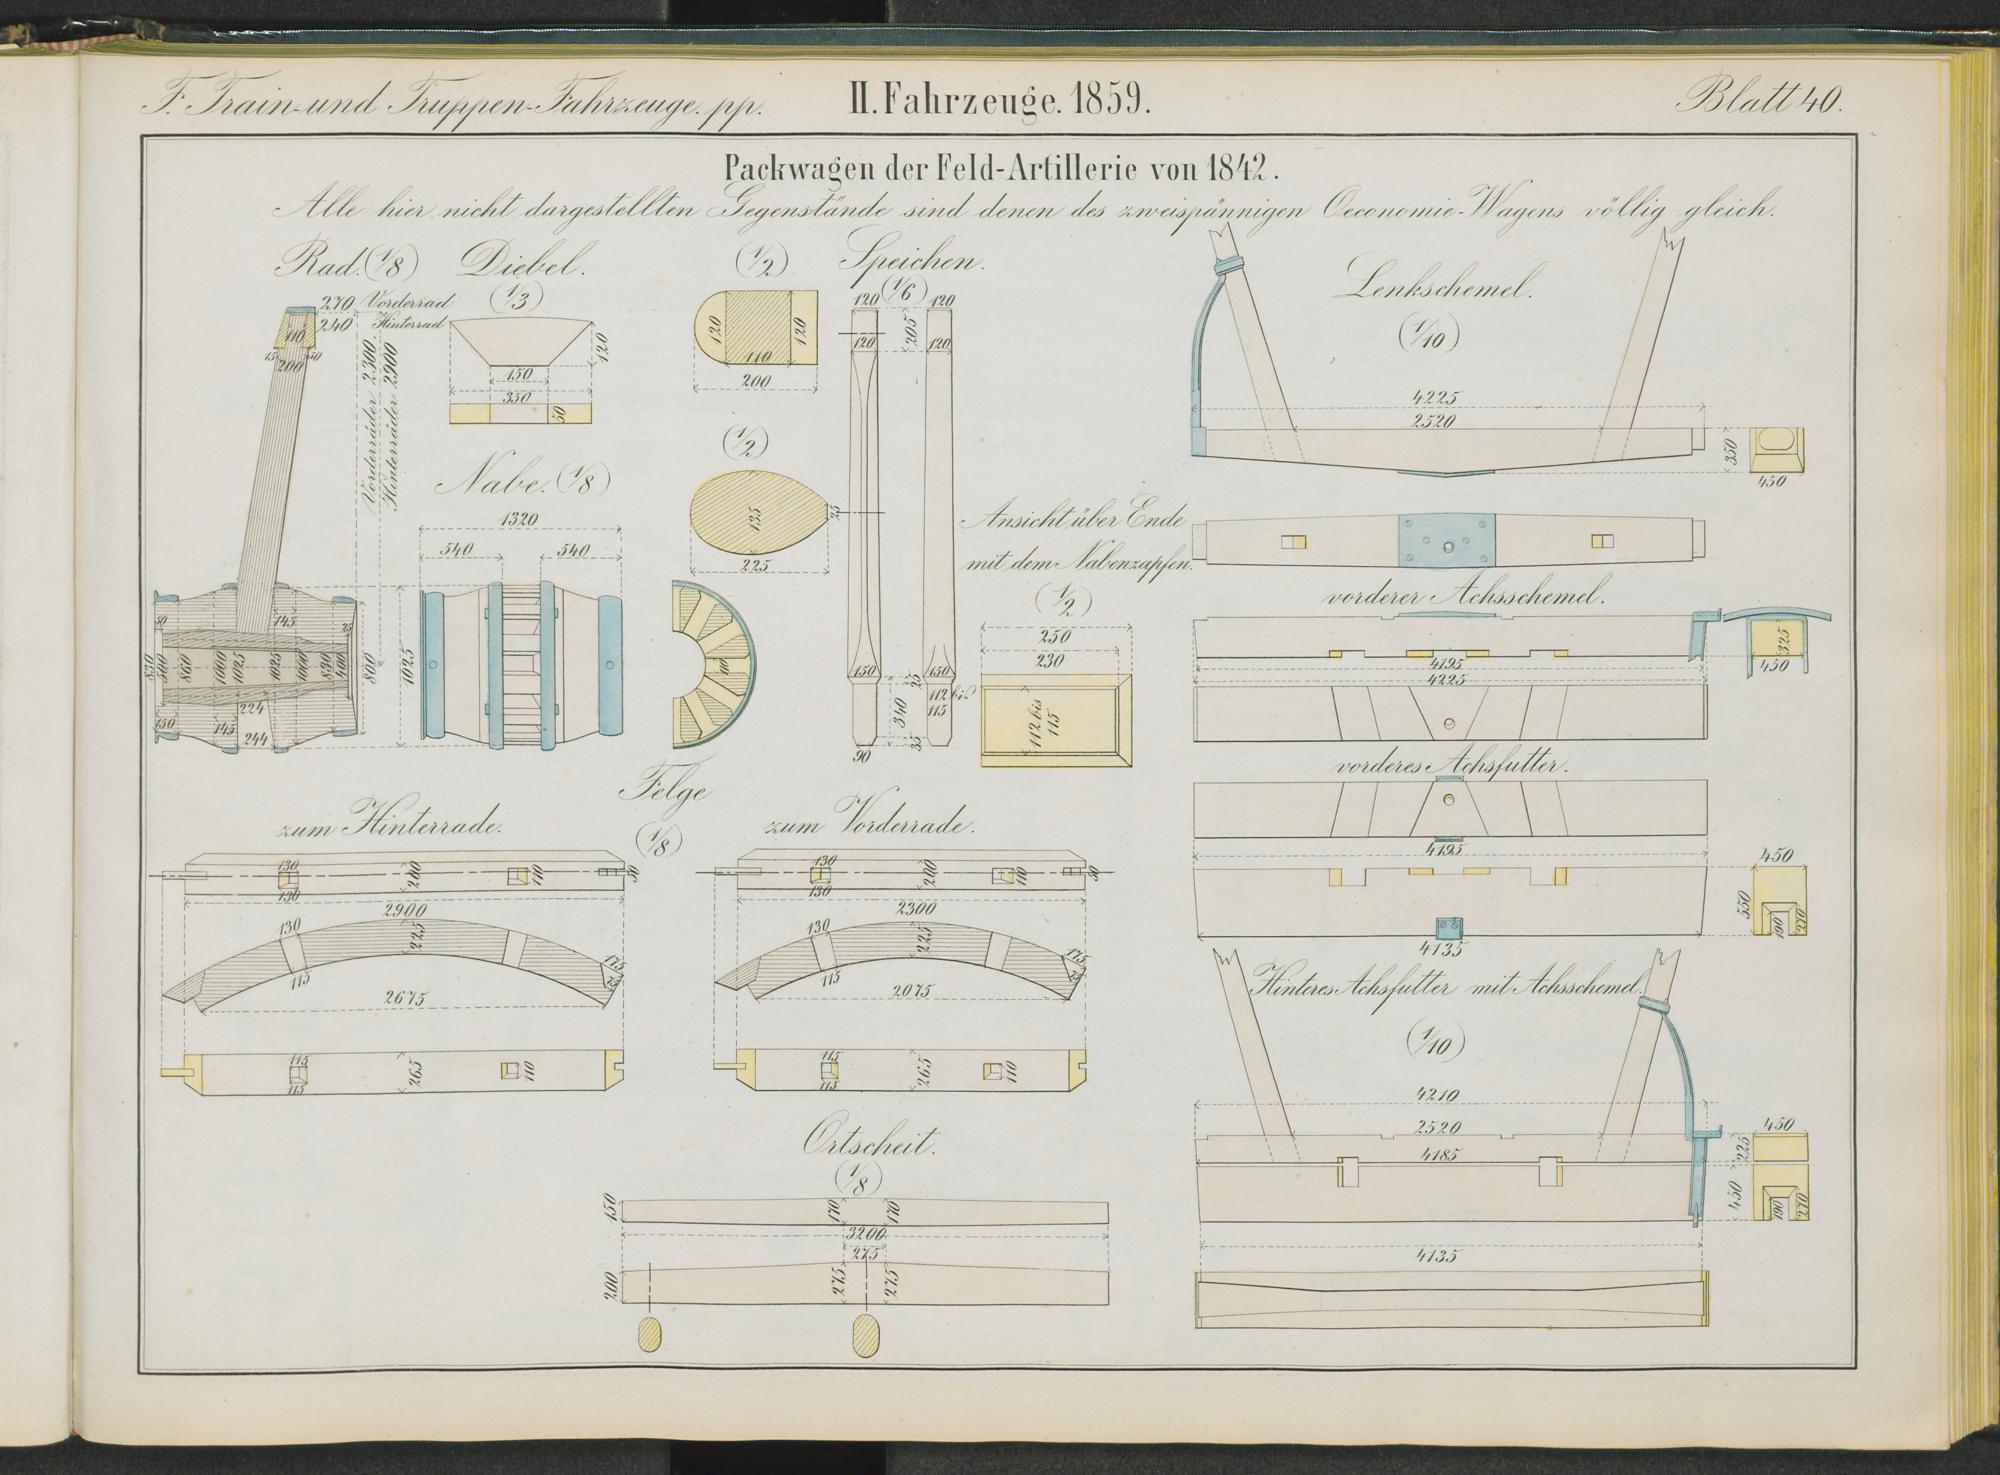 F. Train- und Truppen-Fahrzeuge. pp.
II. Fahrzeuge. 1859.
Blatt 40.
Packwagen der Feld-Artillerie von 1842.
Alle hier nicht dargestellten Gegenstände sind denen des zweispännigen Oeconomie-Wagens völlig gleich.
Rad. (1/8)
270 Vorderrad
240 Hinterrad
110
15
50
200
Vorderräder 2300
Hinterräder 2900
Diebel.
(1/3)
120
150
350
50
Nabe. (1/8)
1320
540
540
1025
50
145
25
830
500
860
1000
1025
1025
1000
830
400
800
150
224
145
244
110
(1/2)
120
110
120
200
(1/2)
135
25
225
Speichen.
(1/6)
120
120
205
120
120
150
150
25
112 bis
115
340
35
90
Ansicht über Ende
mit dem Nabenzapfen.
(1/2)
250
230
112 bis
115
Lenkschemel.
(1/10)
4225
2520
350
450
vorderer Achsschemel.
325
450
4195
4225
vorderes Achsfutter.
4195
450
550
190
270
4135
Hinteres Achsfutter mit Achsschemel.
(1/10)
4210
2520
4185
450
225
450
190
270
4135
Felge
(1/8)
zum Hinterrade.
130
200
110
50
130
2900
130
225
175
75
115
2675
115
265
110
115
zum Vorderrade.
130
200
110
50
130
2300
130
225
175
75
115
2075
115
265
110
115
Ortscheit.
(1/8)
150
170
170
3200
275
200
275
275